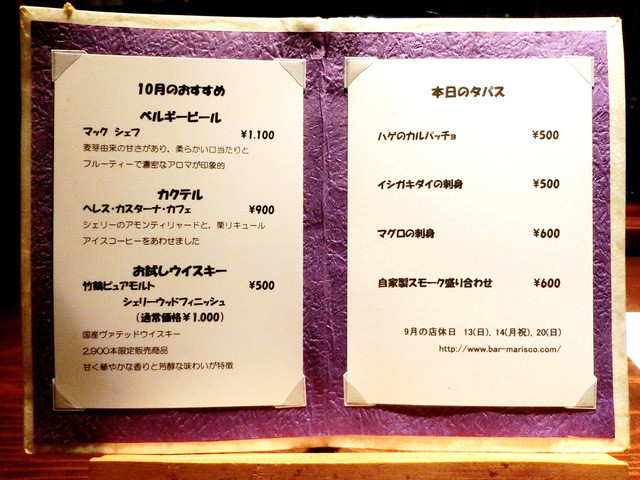 10月のおすすめ
ベルギービール
マック シェフ ¥1.100
麦芽由来の甘さがあり、柔らかい口当たりと
フルーティーで濃密なアロマが印象的
カクテル
ヘレス・カスターナ・カフェ ¥900
シェリーのアモンティリャードと、栗リキュール
アイスコーヒーをあわせました
お試しウイスキー
竹鶴ピュアモルト ¥500
シェリーウッドフィニッシュ
(通常価格¥1.000)
国産ヴァテッドウイスキー
2,900本限定販売商品
甘く華やかな香りと芳醇な味わいが特徴
本日のタパス
ハゲのカルパッチョ ¥500
イシガキダイの刺身 ¥500
マグロの刺身 ¥600
自家製スモーク盛り合わせ ¥600
9月の店休日 13(日), 14(月祝), 20(日)
http://www.bar-marisco.com/